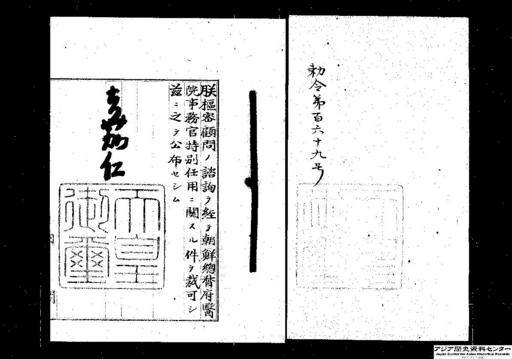 勅令第百六十九号
朕樞密顧問ノ諮詢ヲ経テ朝鮮總督府醫
院事務官特別任用ニ關スル件ヲ裁可シ
茲ニ之ヲ公布セシム
嘉仁
天皇
御璽
アジア歴史資料センター
Japan Center for Asian Historical Records